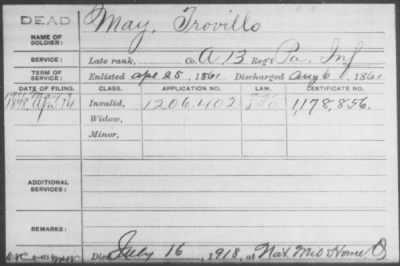 DEAD
May, Trovillo
NAME OF SOLDIER:
SERVICE: Late rank, Co. A 13 Reg't Pa. Inf
TERM OF SERVICE: Enlisted Apr 25, 1861 Discharged Aug 6, 1861
DATE OF FILING. CLASS. APPLICATION NO. LAW. CERTIFICATE NO.
1898, Apr Invalid, 1206.402 1,178,856.
Widow,
Minor,
ADDITIONAL SERVICES:
REMARKS:
Died July 16, 1918, at Nat. Mil Home, O